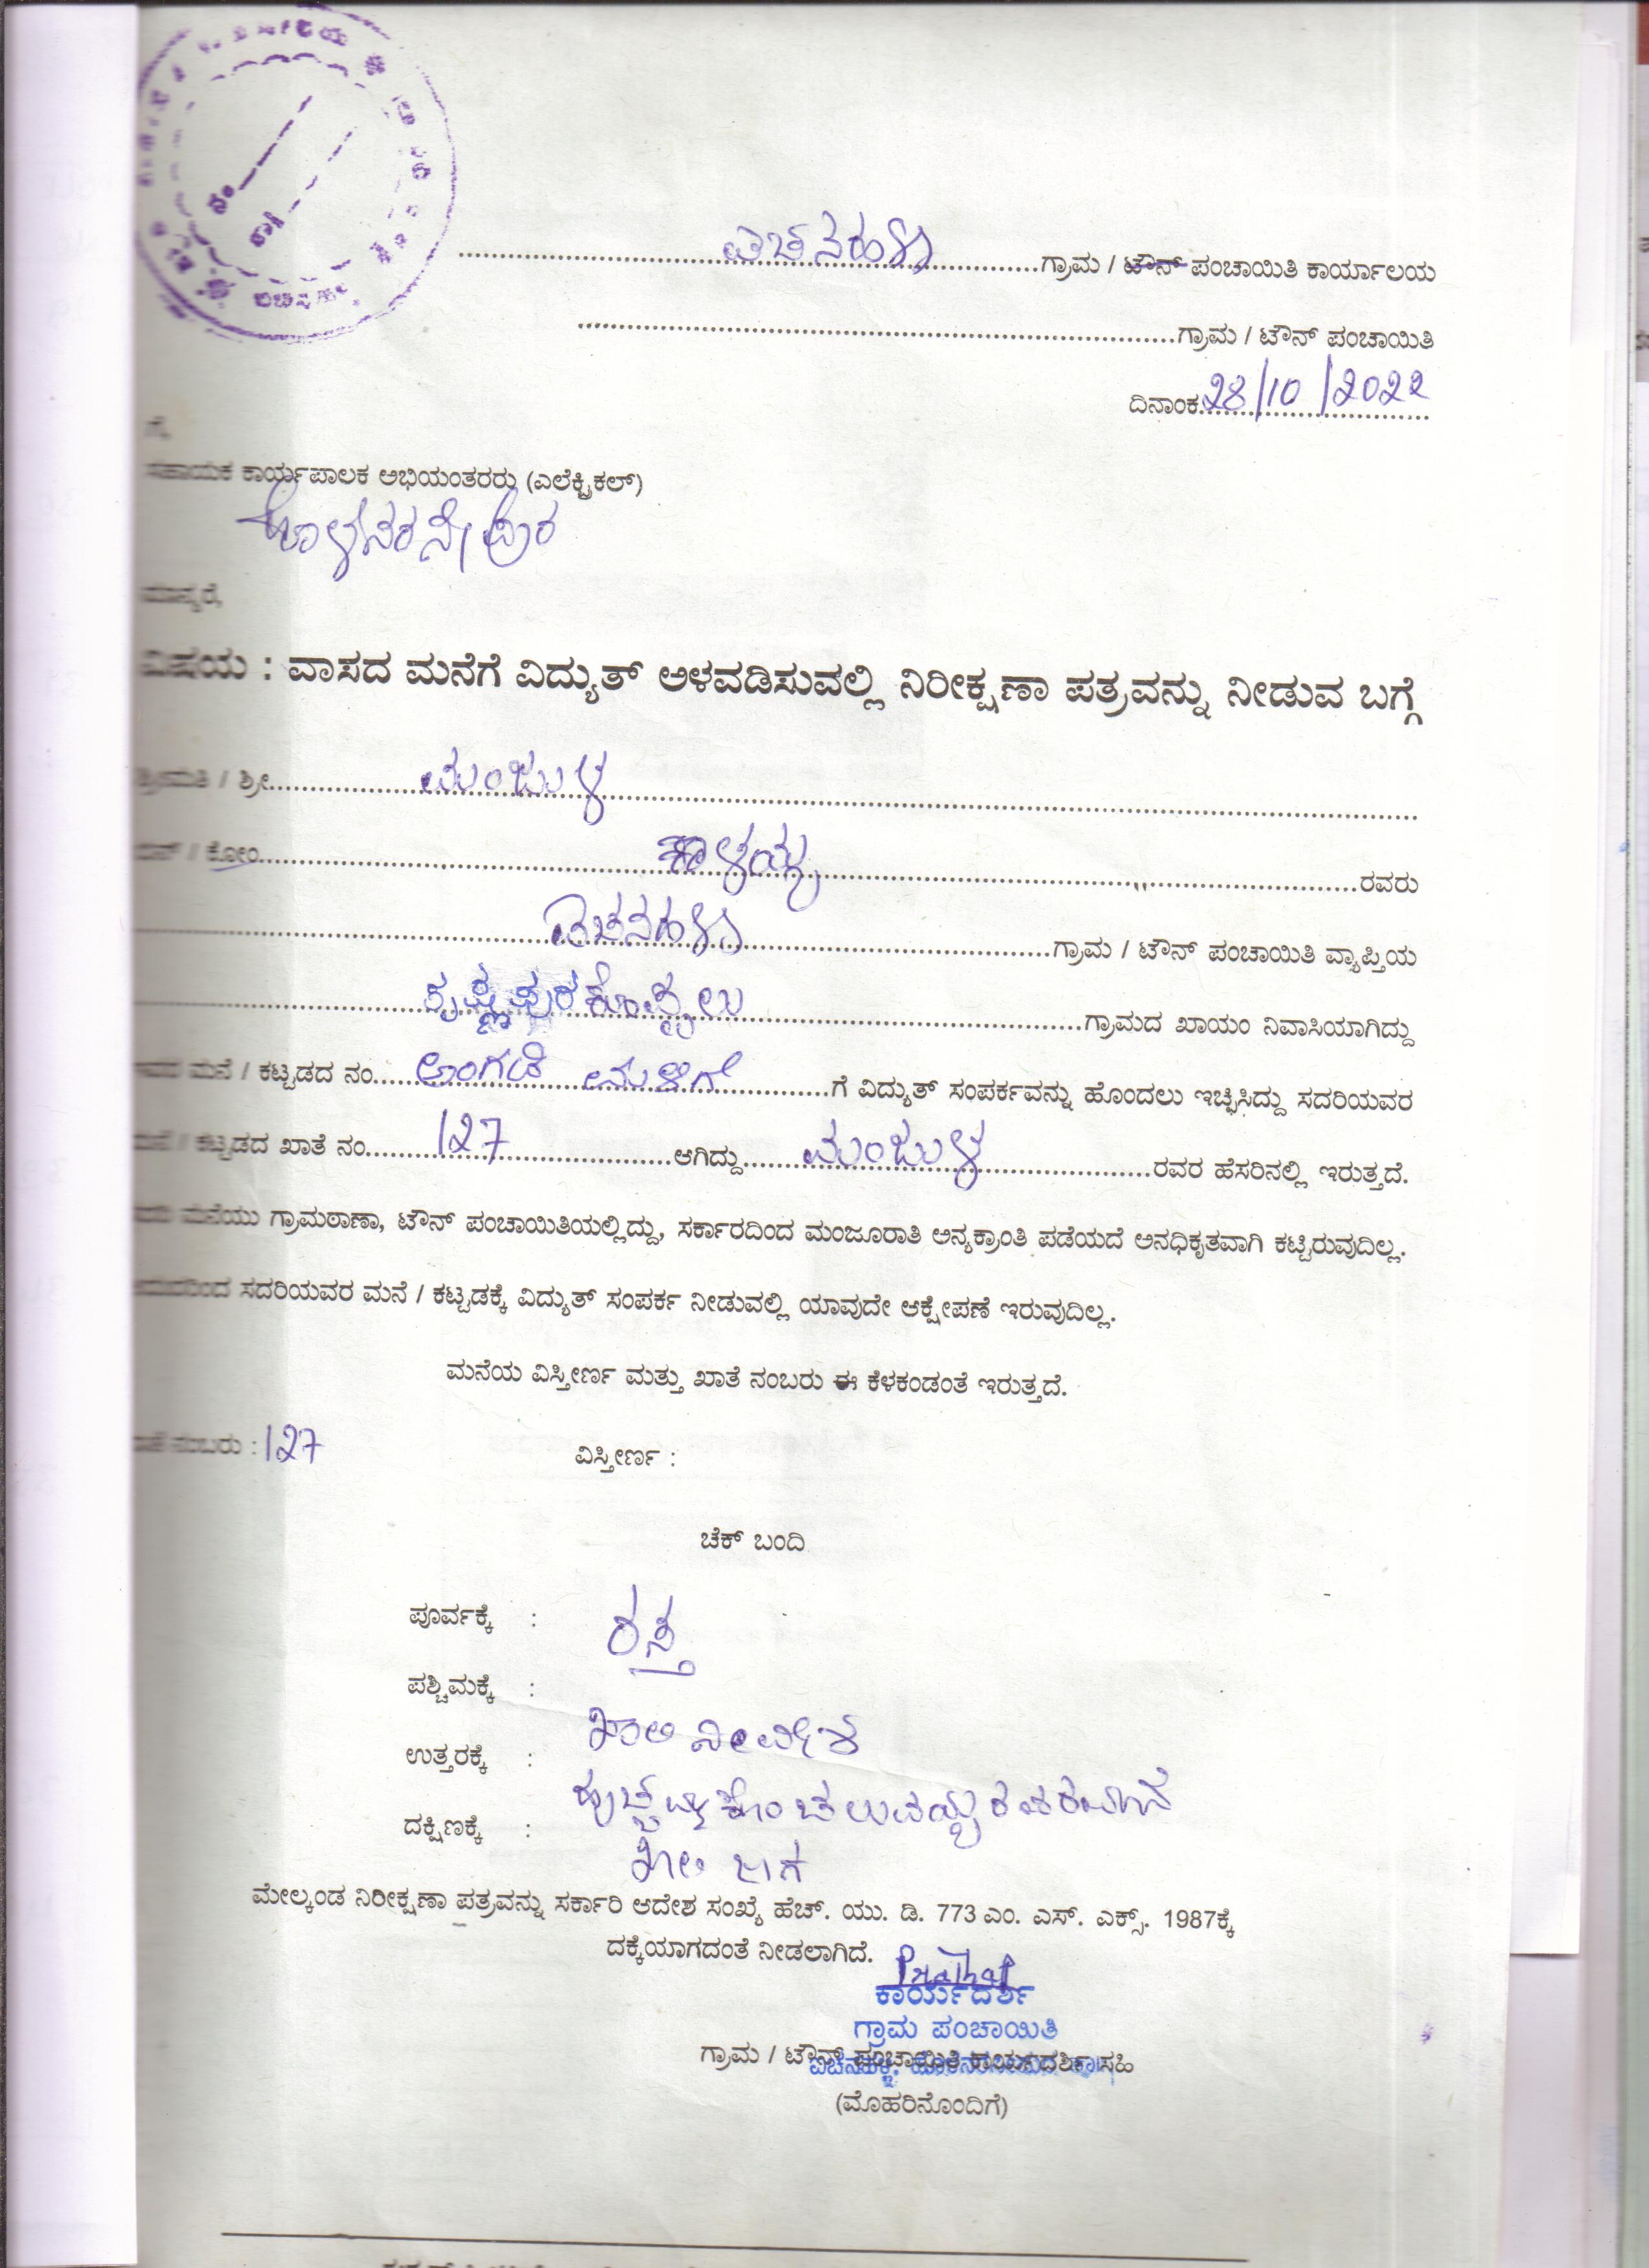 ವಿಚನಹಳ್ಳಿ ಗ್ರಾಮ / ಟೌನ್ ಪಂಚಾಯಿತಿ ಕಾರ್ಯಾಲಯ
ಗ್ರಾಮ / ಟೌನ್ ಪಂಚಾಯಿತಿ
ದಿನಾಂಕ 28/10/2022
ಗೆ,
ಸಹಾಯಕ ಕಾರ್ಯಪಾಲಕ ಅಭಿಯಂತರರು (ಎಲೆಕ್ಟ್ರಿಕಲ್)
ಮಾನ್ಯರೆ,
ವಿಷಯ : ವಾಸದ ಮನೆಗೆ ವಿದ್ಯುತ್ ಅಳವಡಿಸುವಲ್ಲಿ ನಿರೀಕ್ಷಣಾ ಪತ್ರವನ್ನು ನೀಡುವ ಬಗ್ಗೆ
ಶ್ರೀಮತಿ / ಶ್ರೀ ಮಂಜುಳ
ಬಿನ್ / ಕೋಂ ಕಾಳಯ್ಯ ರವರು
ವಿಚನಹಳ್ಳಿ ಗ್ರಾಮ / ಟೌನ್ ಪಂಚಾಯಿತಿ ವ್ಯಾಪ್ತಿಯ
ಕೃಷ್ಣಪುರಕೊಪ್ಪಲು ಗ್ರಾಮದ ಖಾಯಂ ನಿವಾಸಿಯಾಗಿದ್ದು
ಮನೆ / ಕಟ್ಟಡದ ನಂ ಅಂಗಡಿ ಮಳಿಗೆ ಗೆ ವಿದ್ಯುತ್ ಸಂಪರ್ಕವನ್ನು ಹೊಂದಲು ಇಚ್ಛಿಸಿದ್ದು ಸದರಿಯವರ
ಮನೆ / ಕಟ್ಟಡದ ಖಾತೆ ನಂ 127 ಆಗಿದ್ದು ಮಂಜುಳ ರವರ ಹೆಸರಿನಲ್ಲಿ ಇರುತ್ತದೆ.
ಮನೆಯು ಗ್ರಾಮಠಾಣಾ, ಟೌನ್ ಪಂಚಾಯಿತಿಯಲ್ಲಿದ್ದು, ಸರ್ಕಾರದಿಂದ ಮಂಜೂರಾತಿ ಅನ್ಯಕ್ರಾಂತಿ ಪಡೆಯದೆ ಅನಧಿಕೃತವಾಗಿ ಕಟ್ಟಿರುವುದಿಲ್ಲ.
ಸದರಿಯವರ ಮನೆ / ಕಟ್ಟಡಕ್ಕೆ ವಿದ್ಯುತ್ ಸಂಪರ್ಕ ನೀಡುವಲ್ಲಿ ಯಾವುದೇ ಆಕ್ಷೇಪಣೆ ಇರುವುದಿಲ್ಲ.
ಮನೆಯ ವಿಸ್ತೀರ್ಣ ಮತ್ತು ಖಾತೆ ನಂಬರು ಈ ಕೆಳಕಂಡಂತೆ ಇರುತ್ತದೆ.
ಖಾತೆ ನಂಬರು : 127 ವಿಸ್ತೀರ್ಣ :
ಚೆಕ್ ಬಂದಿ
ಪೂರ್ವಕ್ಕೆ : ರಸ್ತೆ
ಪಶ್ಚಿಮಕ್ಕೆ : ಖಾಲಿ ನಿವೇಶ
ಉತ್ತರಕ್ಕೆ :
ದಕ್ಷಿಣಕ್ಕೆ : ಖಾಲಿ ಜಾಗ
ಮೇಲ್ಕಂಡ ನಿರೀಕ್ಷಣಾ ಪತ್ರವನ್ನು ಸರ್ಕಾರಿ ಆದೇಶ ಸಂಖ್ಯೆ ಹೆಚ್. ಯು. ಡಿ. 773 ಎಂ. ಎಸ್. ಎಕ್ಸ್. 1987ಕ್ಕೆ
ದಕ್ಕೆಯಾಗದಂತೆ ನೀಡಲಾಗಿದೆ.
ಕಾರ್ಯದರ್ಶಿ
ಗ್ರಾಮ ಪಂಚಾಯಿತಿ
ಗ್ರಾಮ / ಟೌನ್ ಪಂಚಾಯಿತಿ ಕಾರ್ಯದರ್ಶಿ ಸಹಿ
(ಮೊಹರಿನೊಂದಿಗೆ)